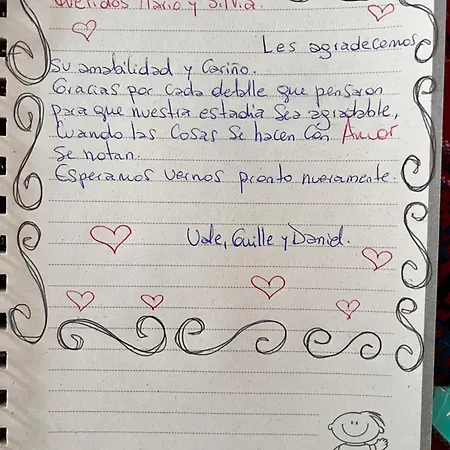 Queridos Mario y Silvia.
Les agradecemos
su amabilidad y Cariño.
Gracias por cada detalle que pensaron
para que nuestra estadia sea agradable,
Cuando las cosas se hacen con Amor
se notan.
Esperamos vernos pronto nuevamente.
Vale, Guille y Daniel.